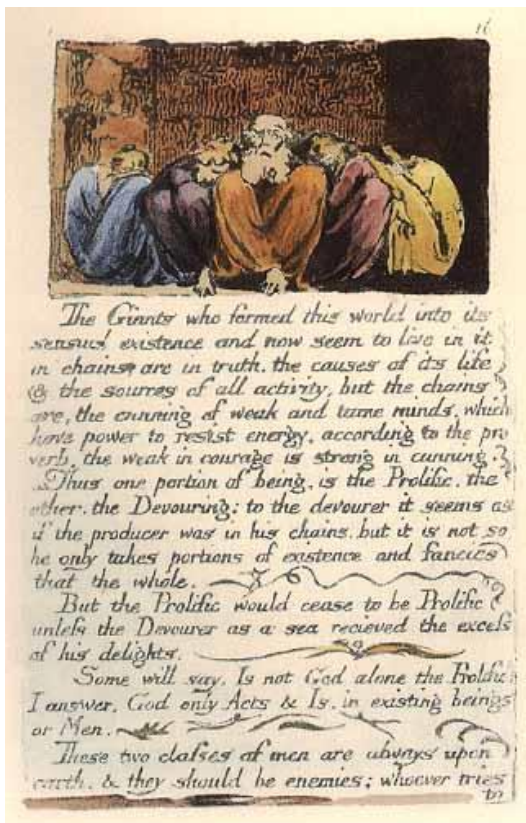 16
The Giants who formed this world into its
sensual existence and now seem to live in it
in chains are in truth, the causes of its life
& the sources of all activity, but the chains
are, the cunning of weak and tame minds, which
have power to resist energy, according to the pro
verb, the weak in courage is strong in cunning.
Thus one portion of being, is the Prolific, the
other, the Devouring; to the devourer it seems as
if the producer was in his chains, but it is not so
he only takes portions of existence and fancies
that the whole.
But the Prolific would cease to be Prolific
unleſs the Devourer as a sea recieved the exceſs
of his delights.
Some will say, Is not God alone the Prolific
I answer, God only Acts & Is, in existing beings
or Men.
These two claſses of men are always upon
earth, & they should be enemies; whoever tries
to